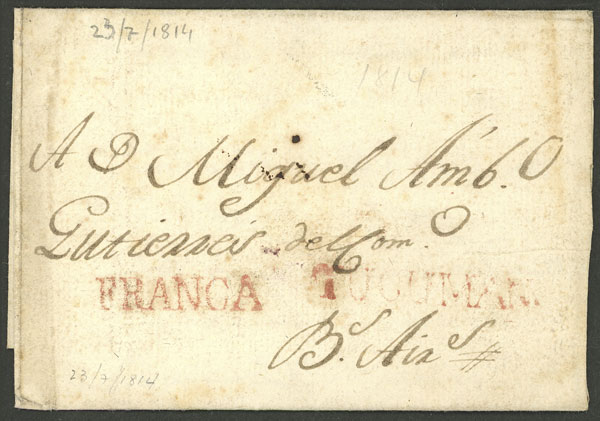 23/7/1814
1814
A D Miguel Amb.O
Gutierres del Com.O
FRANCA TUCUMAN.
Bs. Airs #
23/7/1814